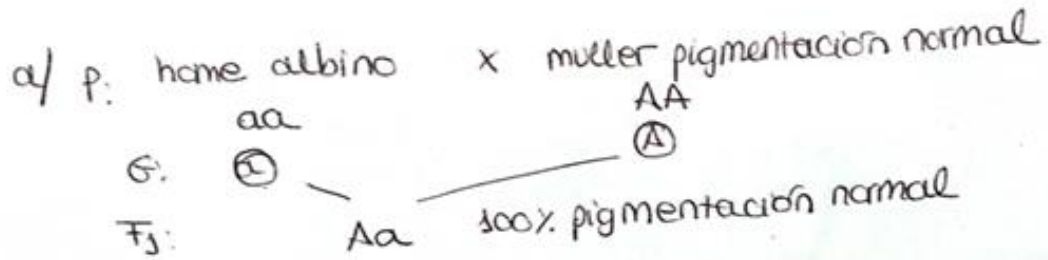 a/ P: home albino x muller pigmentación normal
aa AA
G: a A
F1: Aa 100% pigmentación normal